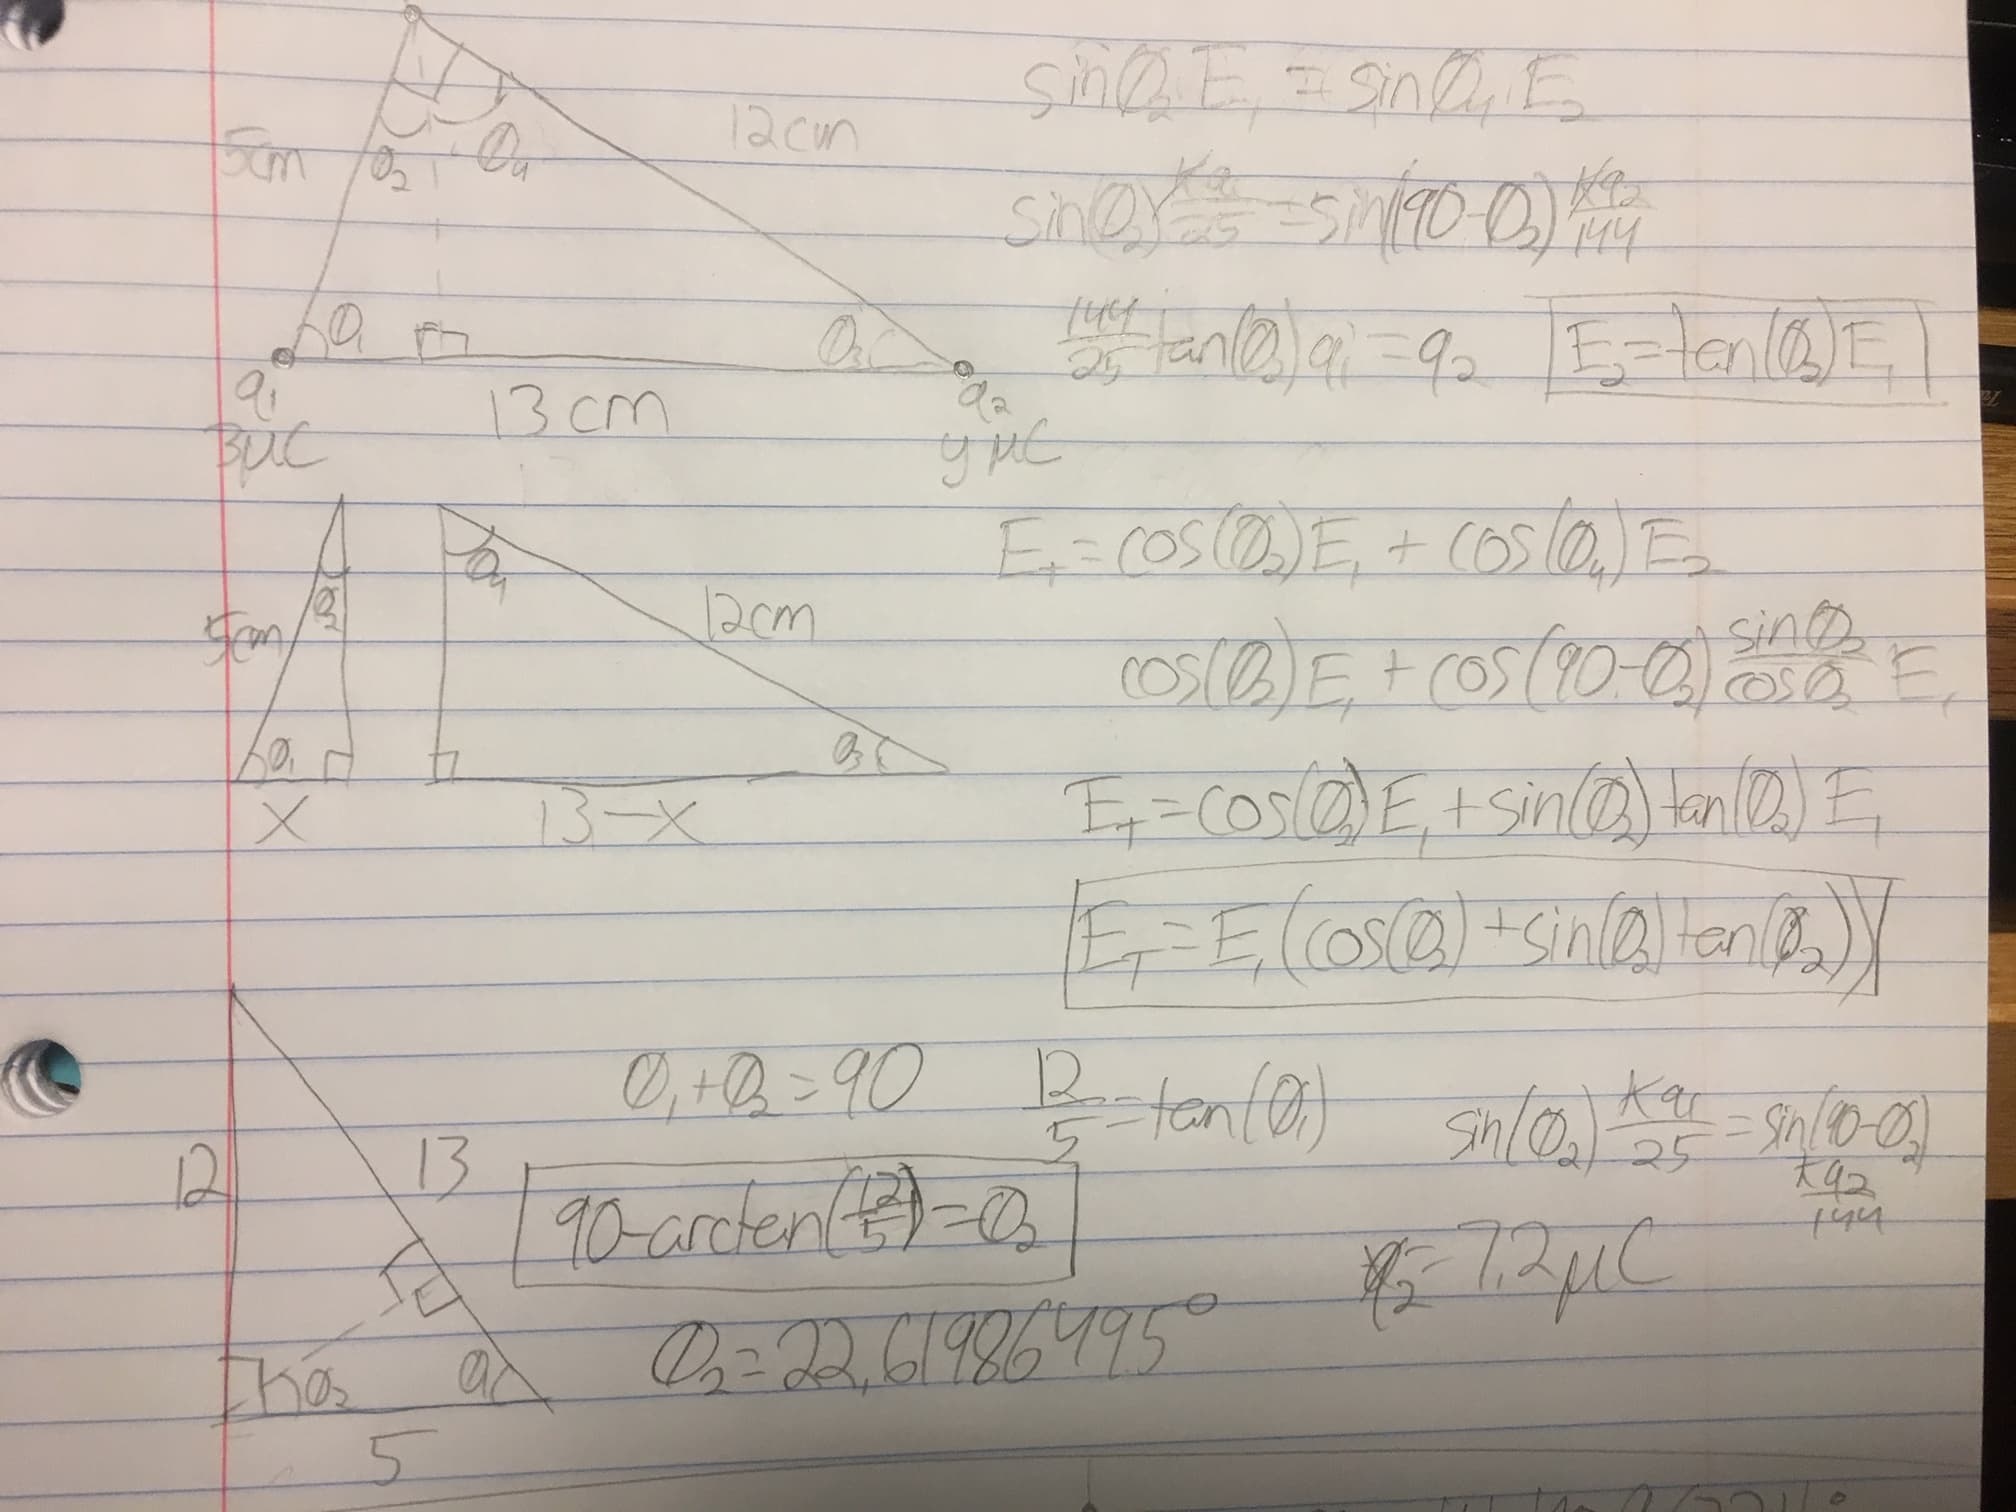 5cm
θ₂ θ₄
12cm
θ₁
θ₃
q₁
3μC
13cm
q₂
yμC
sinθ₂E₁ = sinθ₄E₂
sin(θ₂)Kq₁/25 = sin(90-θ₂)Kq₂/144
144/25 tan(θ₂)q₁ = q₂
E₂=tan(θ₂)E₁
5cm
θ₂
θ₁
x
θ₄
12cm
θ₃
13-x
E_T=cos(θ₂)E₁+cos(θ₄)E₂
cos(θ₂)E₁+cos(90-θ₂)sinθ₂/cosθ₂ E₁
E_T=cos(θ₂)E₁+sin(θ₂)tan(θ₂)E₁
E_T=E₁(cos(θ₂)+sin(θ₂)tan(θ₂))
12
13
θ₂
θ₁
5
θ₁+θ₂=90
12/5=tan(θ₁)
90-arctan(12/5)=θ₂
θ₂=22.61986495°
sin(θ₂)Kq₁/25=sin(90-θ₂)
Kq₂/144
q₂=7.2μC